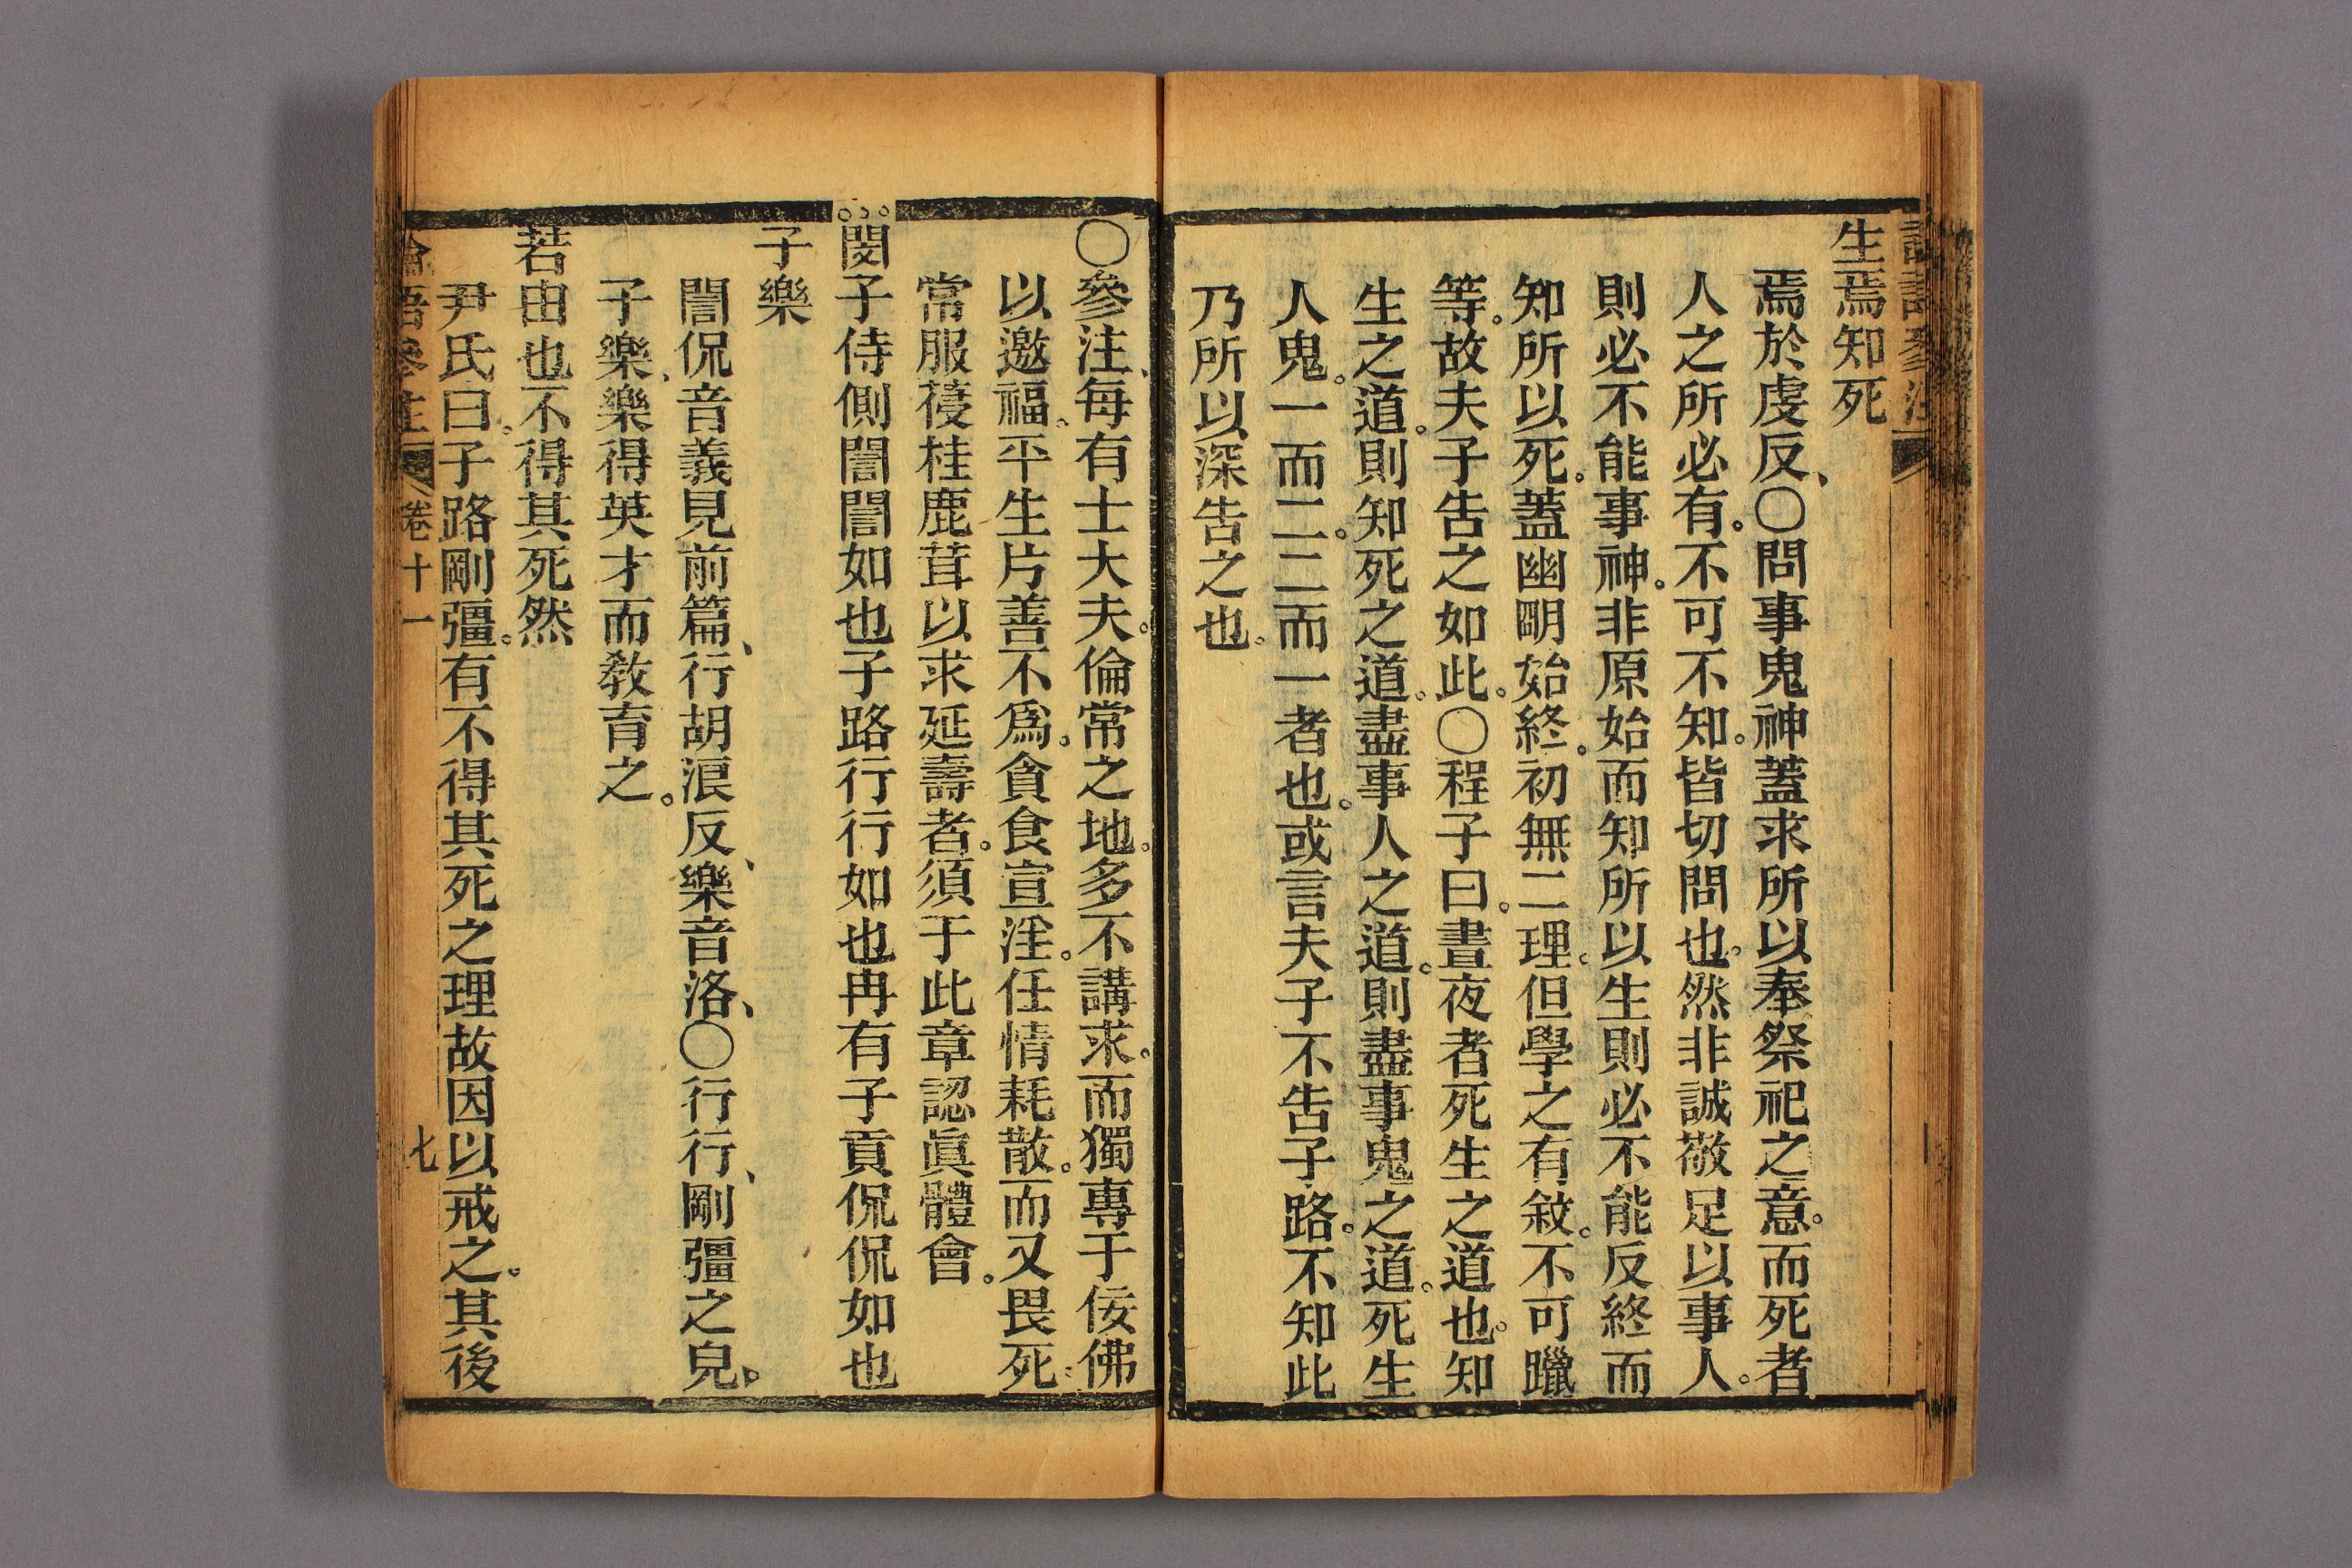 生焉知死
焉於虔反、〇問事鬼神蓋求所以奉祭祀之意。而死者
人之所必有。不可不知。皆切問也。然非誠敬足以事人。
則必不能事神。非原始而知所以生則必不能反終而
知所以死。蓋幽明始終。初無二理。但學之有敘。不可躐
等。故夫子告之如此。〇程子曰。晝夜者死生之道也。知
生之道。則知死之道。盡事人之道。則盡事鬼之道。死生
人鬼。一而二。二而一者也。或言夫子不告子路。不知此
乃所以深告之也。
〇參注、每有士大夫。倫常之地。多不講求。而獨專于佞佛
以邀福。平生片善不爲。貪食宣淫。任情耗散。而又畏死
常服葠桂鹿茸以求延壽者。須于此章認眞體會。
閔子侍側誾誾如也子路行行如也冉有子貢侃侃如也
子樂
誾侃音義見前篇、行胡浪反、樂音洛、〇行行、剛彊之皃。
子樂、樂得英才而敎育之。
若由也不得其死然
尹氏曰。子路剛彊。有不得其死之理故因以戒之。其後
論語參注 卷十一 七